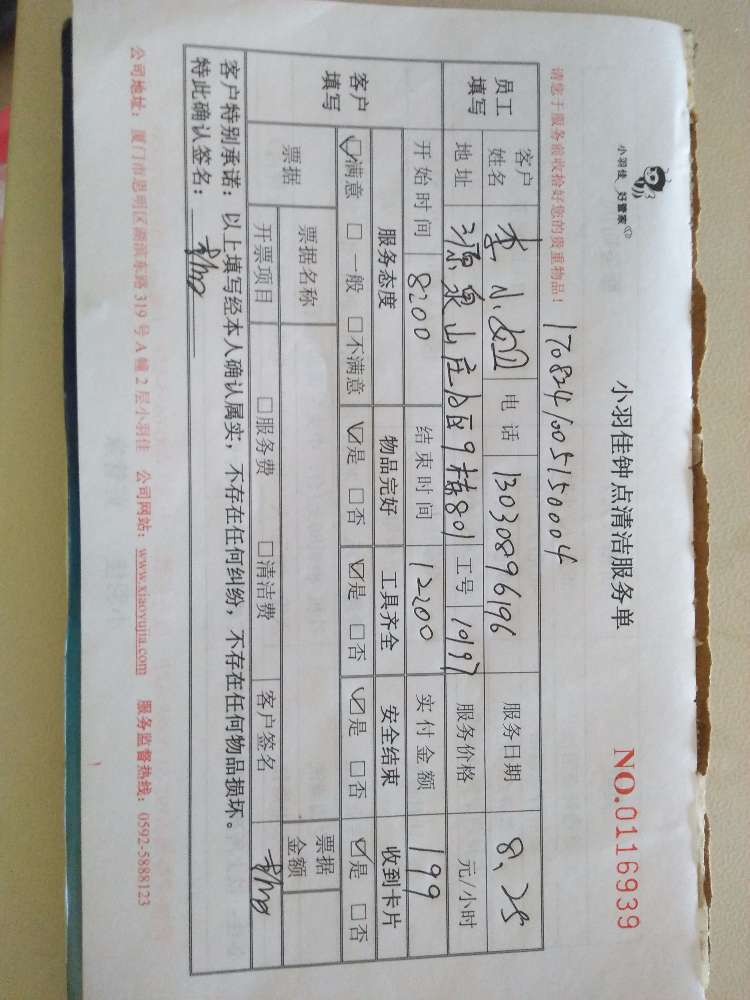 小羽佳 好管家
小羽佳钟点清洁服务单
NO.0116939
请您于服务前收拾好您的贵重物品!
1708241005150004
员工填写
客户姓名 李小 电话 13030896196 服务日期 8.25
地址 源泉山庄 区9栋801 工号 1097 服务价格 元/小时
开始时间 8200 结束时间 12200 实付金额 199
客户填写
服务态度 物品完好 工具齐全 安全结束 收到卡片
☑满意 □一般 □不满意 ☑是 □否 ☑是 □否 ☑是 □否 ☑是 □否
票据 票据名称 票据金额
开票项目 □服务费 □清洁费 客户签名
客户特别承诺:以上填写经本人确认属实,不存在任何纠纷,不存在任何物品损坏。
特此确认签名:
公司地址:厦门市思明区湖滨东路319号A幢2层小羽佳 公司网站:www.xiaoyujia.com 服务监督热线:0592-5888123